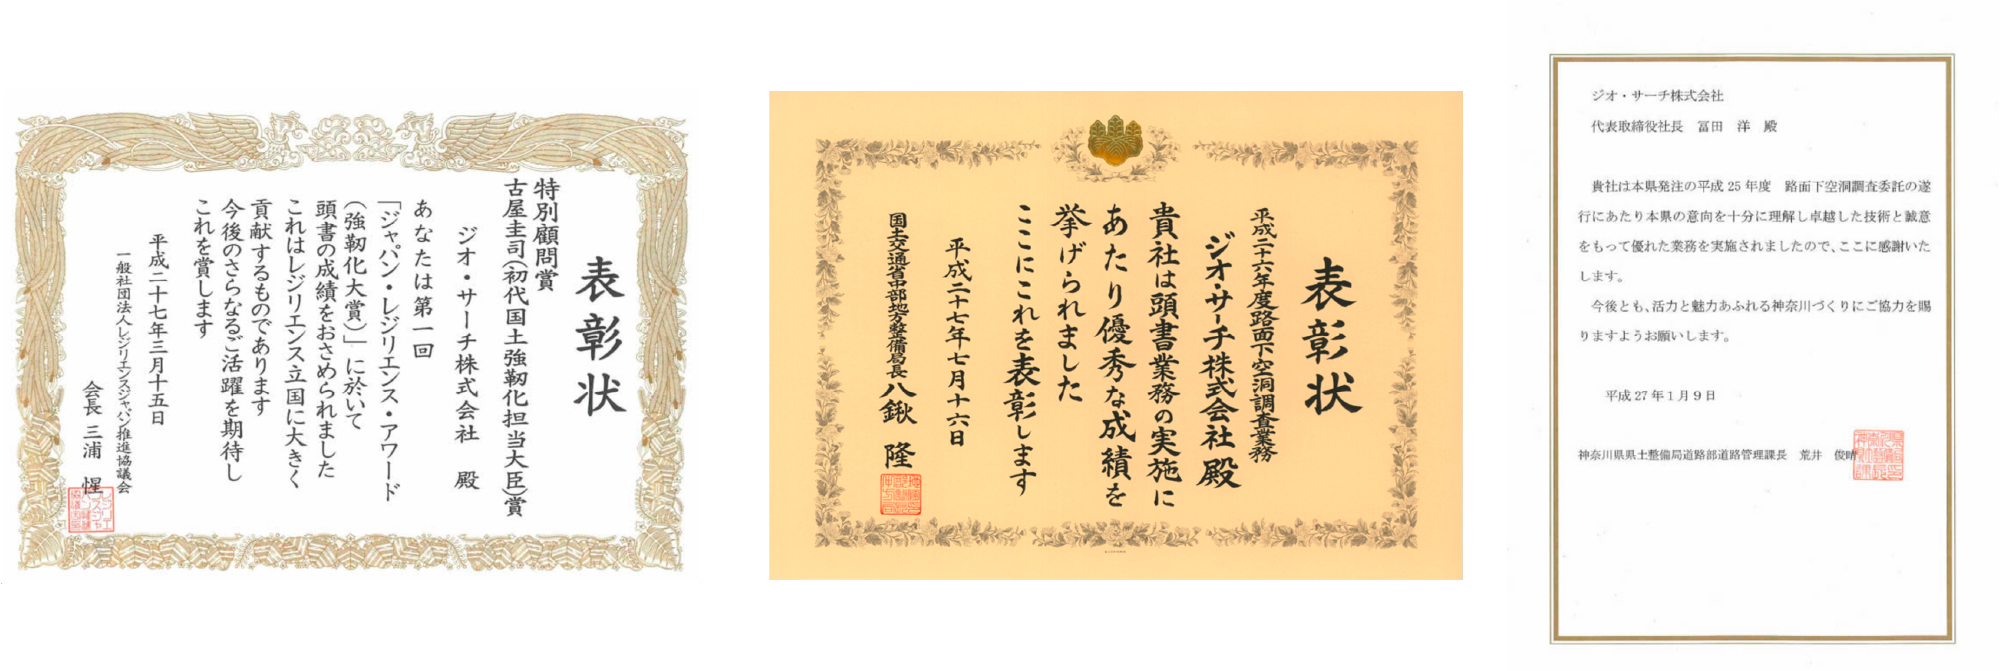 表彰状
特別顧問賞
古屋圭司(初代国土強靭化担当大臣)賞
ジオ・サーチ株式会社 殿
あなたは第一回
「ジャパン・レジリエンス・アワード
(強靭化大賞)」に於いて
頭書の成績をおさめられました
これはレジリエンス立国に大きく
貢献するものであります
今後のさらなるご活躍を期待し
これを賞します
平成二十七年三月十五日
一般社団法人レジリエンスジャパン推進協議会
会長 三浦 惺
表彰状
平成二十六年度路面下空洞調査業務
ジオ・サーチ株式会社 殿
貴社は頭書業務の実施に
あたり優秀な成績を
挙げられました
ここにこれを表彰します
平成二十七年七月十六日
国土交通省中部地方整備局長 八鍬 隆
ジオ・サーチ株式会社
代表取締役社長 冨田 洋 殿
貴社は本県発注の平成 25 年度 路面下空洞調査委託の遂
行にあたり本県の意向を十分に理解し卓越した技術と誠意
をもって優れた業務を実施されましたので、ここに感謝いた
します。
今後とも、活力と魅力あふれる神奈川づくりにご協力を賜
りますようお願いします。
平成 27 年 1 月 9 日
神奈川県県土整備局道路部道路管理課長 荒井 俊晴